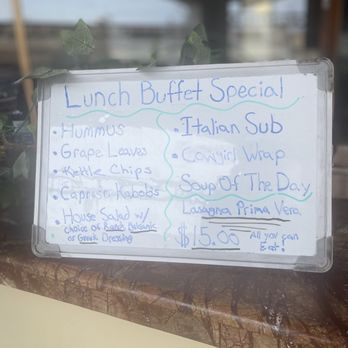 Lunch Buffet Special
• Hummus
• Grape Leaves
• Kettle Chips
• Caprese Kabobs
• House Salad w/
choice of Ranch, Balsamic
or Greek Dressing
• Italian Sub
• Cowgirl Wrap
Soup Of The Day
Lasagna Prima Vera
$15.00 All you can
Eat!